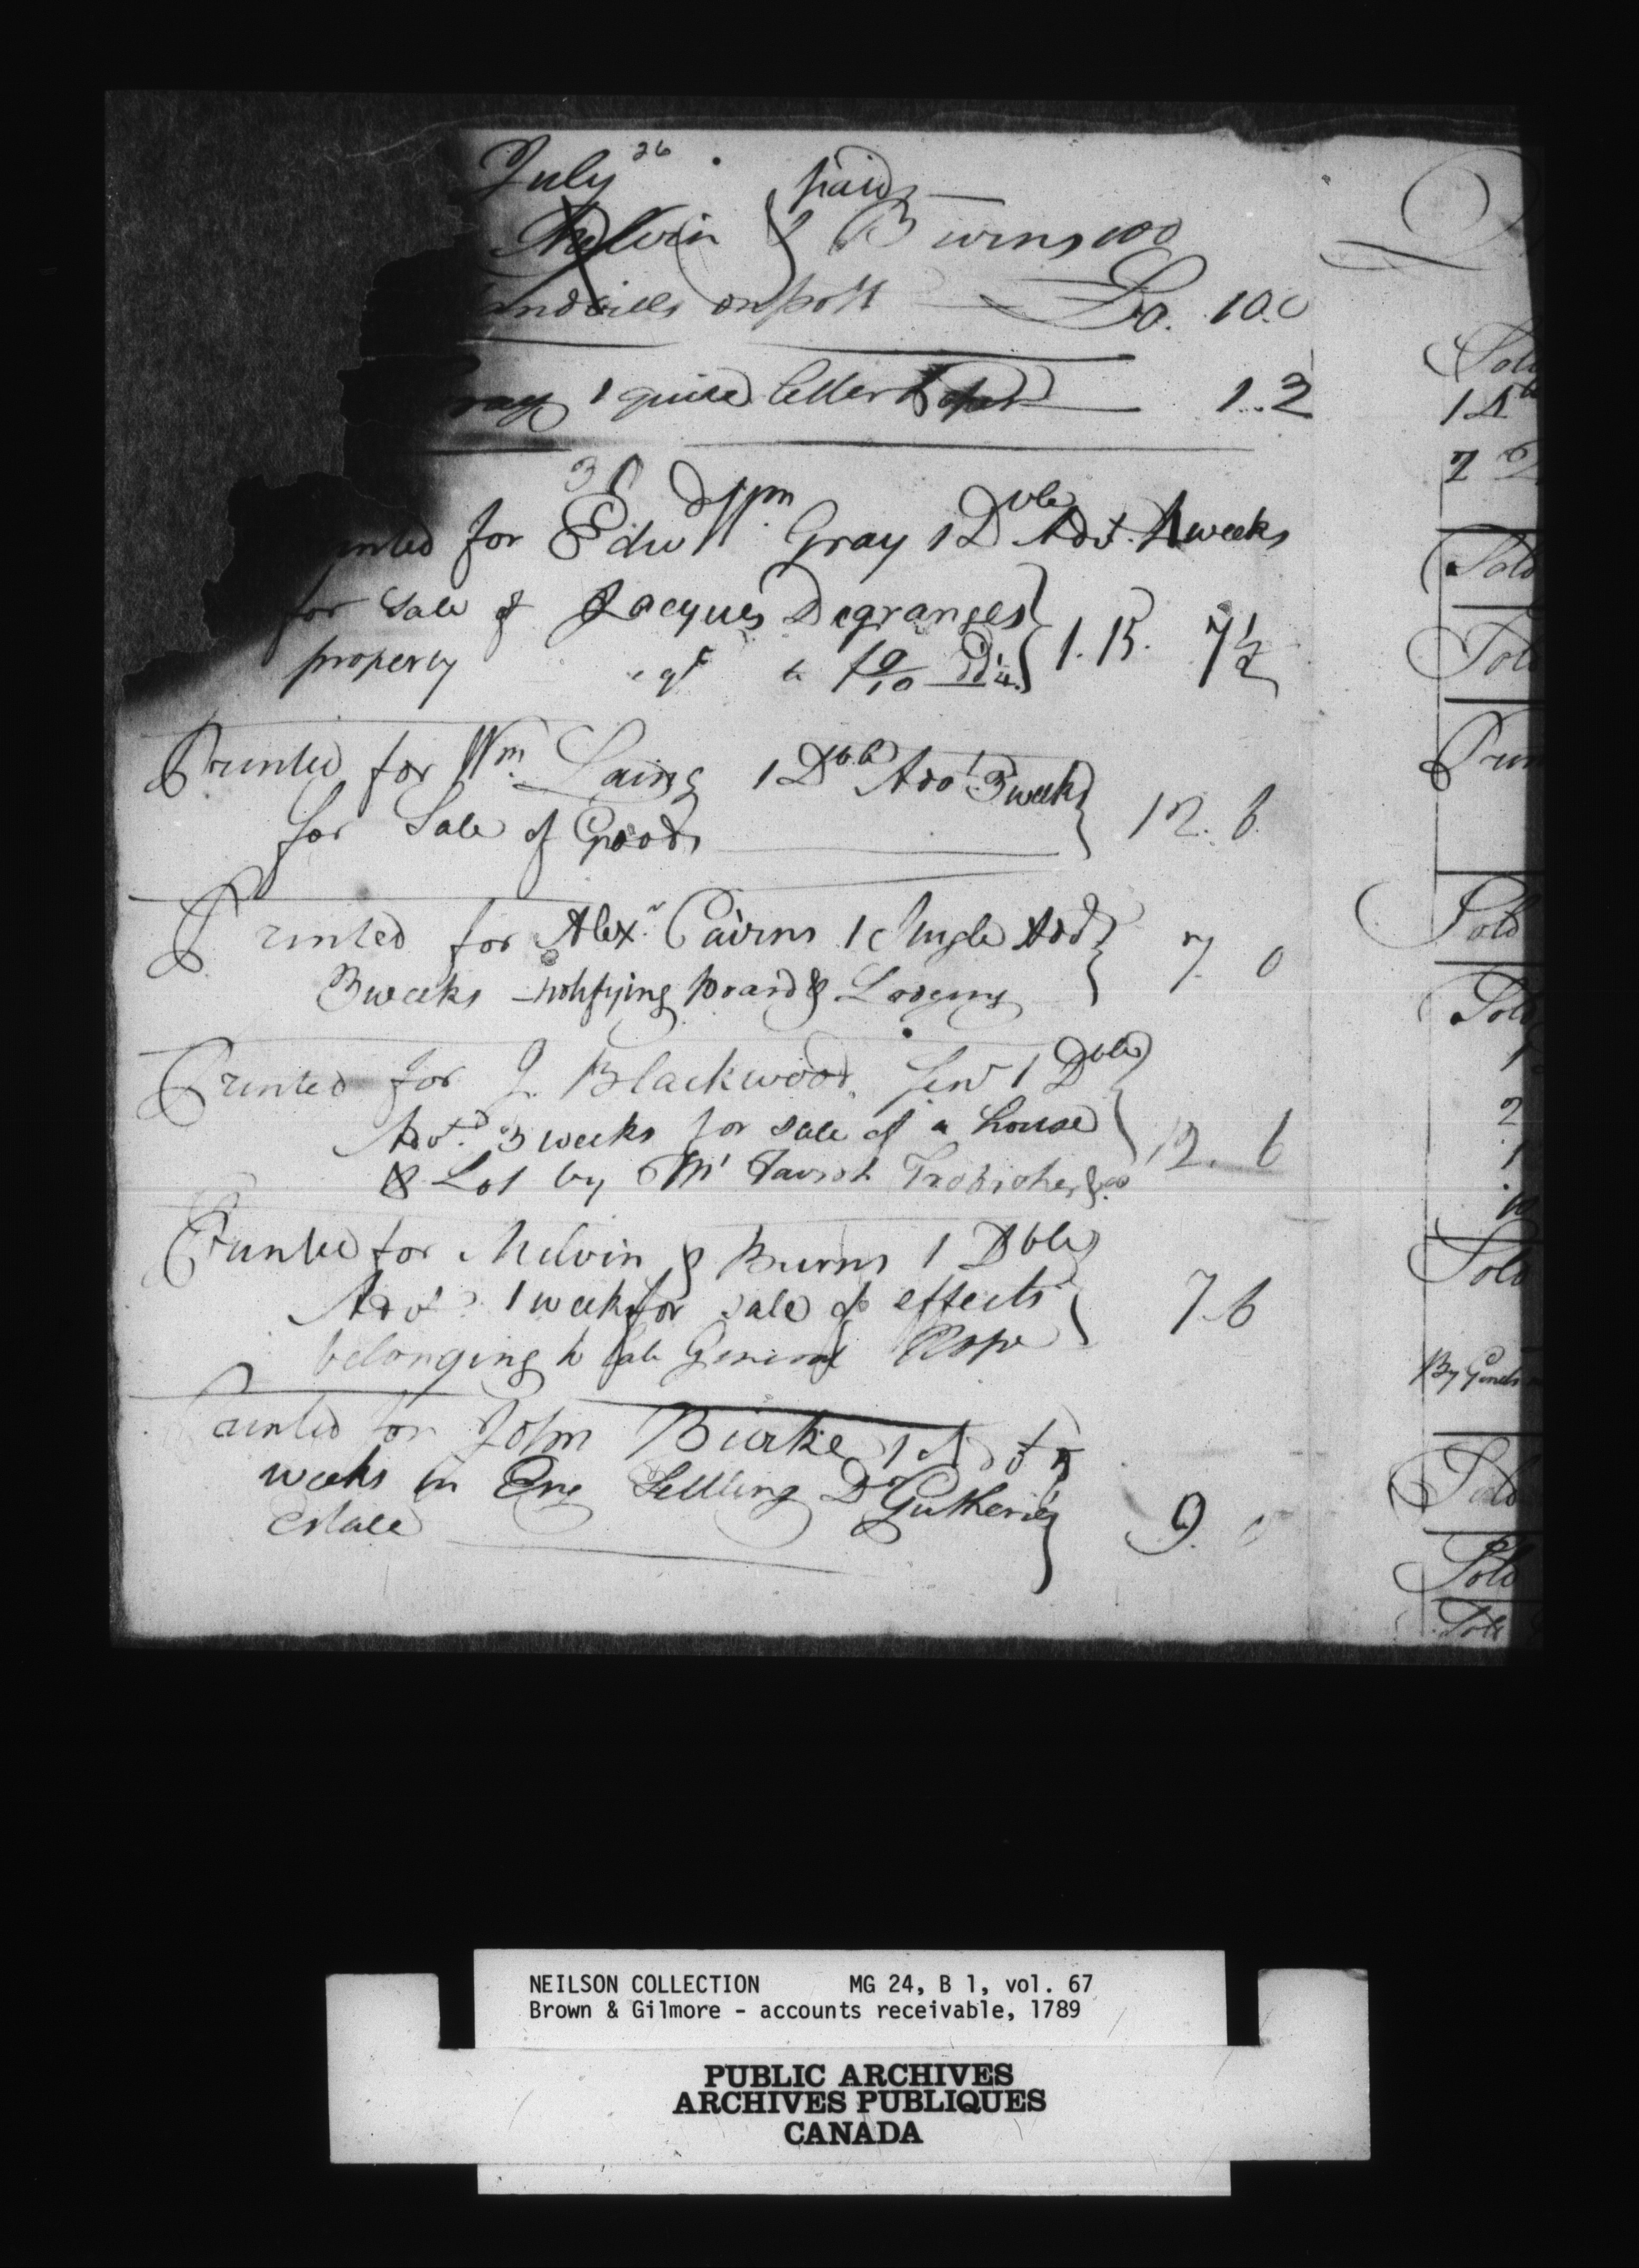 July 26
paid
Melvin & Burns 100
andbills on post Do. 10.0
ray 1 quire letter 1..2
30
inted for Edwd Wm Gray 1 Dble Adt. 4 weeks
for Sale of Jacques Degranges
property 1. 15. 7½
Printed for Wm. Laing 1 Dble Advt 3 weeks
for Sale of Goods 12. 6
Printed for Alexr. Cairns 1 Single Adv
3 weeks notifying board & Lodging 7. 0
Printed for J. Blackwood 1 Dble
Advt. 3 weeks for sale of a house
& Lot by Mc Tavish Frobisher & Co 12. 6
Printed for Melvin & Burns 1 Dble
Advt. 1 week for sale of effects
belonging to late General Hope 7.6
Printed for John Burke 1
weeks in Eng Settling Dr Gutherie's
Estate 9. 0
Sold
Sold
Sold
Sold
Sold
2
1
Sold
Sold
Sold
NEILSON COLLECTION MG 24, B 1, vol. 67
Brown & Gilmore - accounts receivable, 1789
PUBLIC ARCHIVES
ARCHIVES PUBLIQUES
CANADA